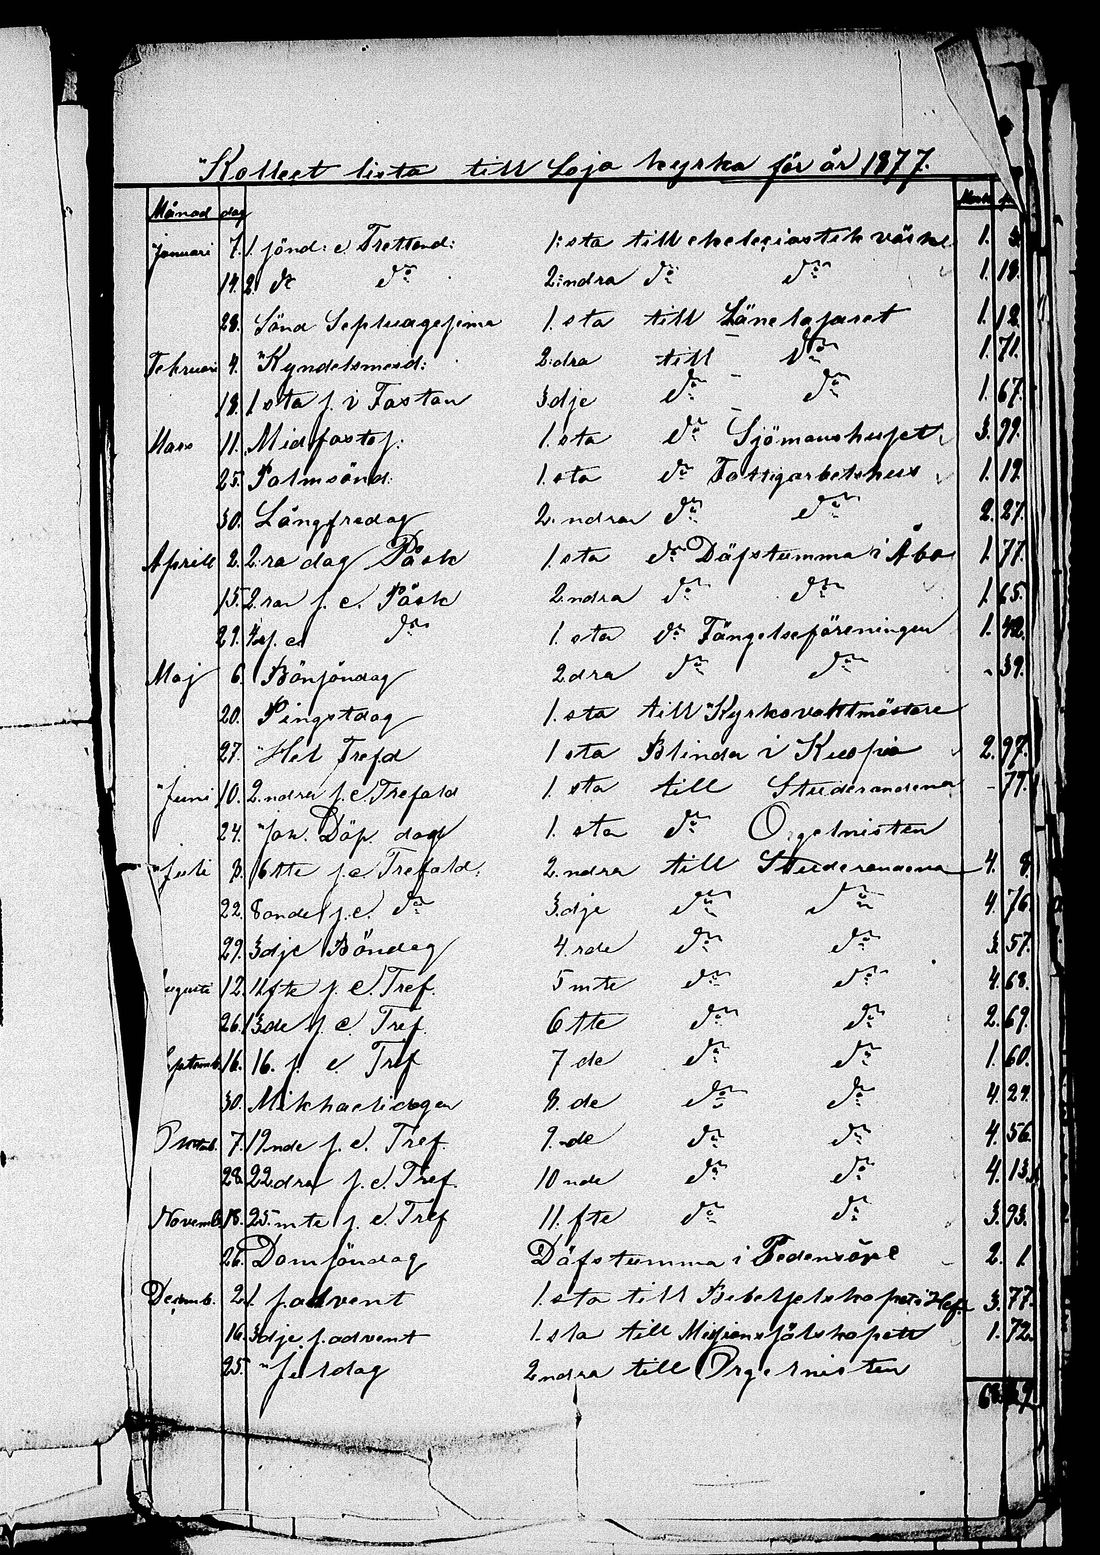 Kollect lista till Lojo kyrka för år 1877.
Månad dag Mark p.
Januari 7. 1 sönd: e Trettond: 1:sta till eklesiastik väsne 1.
14. 2. do do 2:ndra do do 1. 18.
28. Sönd Septuagesima 1. sta till Länelasaret 1. 12.
Februari 4. Kyndelsmesd: 2:dra till do 1. 71.
18. 1 sta s. i Fastan 3dje do do 1. 67.
Mars 11. Midfastos: 1. sta do Sjömanshuset 3. 99.
25. Palmsönd: 1. sta do Fattigarbetshus 1. 19.
30. Långfredag 2. ndra do do 2. 27.
Aprill 2. 2.ra dag Påsk 1. sta do Döfstumma i Åbo 1. 77.
15. 2.ra s. e. Påsk 2.ndra do do 1. 65.
29. s. e. do 1. sta do Fängelseföreningen 1. 42.
Maj 6. Bönsöndag 2.dra do do - 39.
20. Pingstdag 1. sta till Kyrkovaktmästare
27. Hel Trefd 1 sta Blinda i Kuopio 2. 97.
Juni 10. 2.ndra s. e. Trefald 1. sta till Studerandena - 77.
24. Joh. Döp. dag 1. sta do Orgelnisten
Juli 8. 6tte s. e Trefald: 2.ndra till Studerandena 4. 8.
22. 8.onde s. e. do 3.dje do do 4. 76.
29. 3dje Böndag 4.rde do do 3. 57.
Augusti 12. 11fte s. e. Tref. 5 mte do do 4. 68.
26. 13de s. e. Tref. 6 tte do do 2. 69.
Septemb. 16. 16. s. e Tref 7 de do do 1. 60.
30. Mikhaelidagen 8. de do do 4. 27.
Octob. 7. 19nde s. e. Tref. 9.nde do do 4. 56.
28. 22dra s. e. Tref. 10 nde do do 4. 13.
Novemb. 18. 25.mte s. e. Tref 11. fte do do 3. 93.
26. Domsöndag Döfstumma i Pedersöre 2. 1.
Decemb. 2. 1 s. advent 1. sta till Bibelselskapet i Hef. 3. 77.
16. 3dje s. advent 1. sta till Missionssälskapet 1. 72.
25. Juldag 2.ndra till Orgelnisten